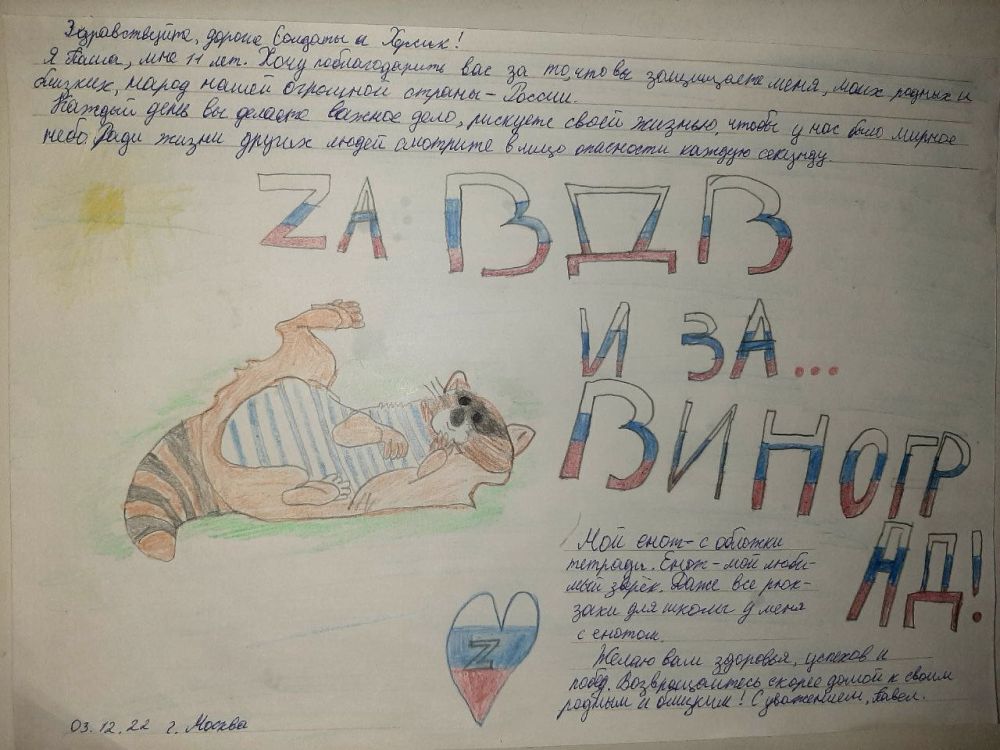 Здравствуйте, дорогие Солдаты и Херсик!
Я Паша, мне 11 лет. Хочу поблагодарить вас за то, что вы защищаете меня, моих родных и
близких, народ нашей огромной страны - России.
Каждый день вы делаете важное дело, рискуете своей жизнью, чтобы у нас было мирное
небо. Ради жизни других людей смотрите в лицо опасности каждую секунду.
ZА ВДВ
И ЗА...
ВИНОГР
АД!
Мой енот - с обложки
тетради. Енот - мой люби-
мый зверёк. Даже все рюк-
заки для школы у меня
с енотом.
Желаю вам здоровья, успехов и
побед. Возвращайтесь скорее домой к своим
родным и близким! С уважением, Павел.
Z
03.12.22 г. Москва